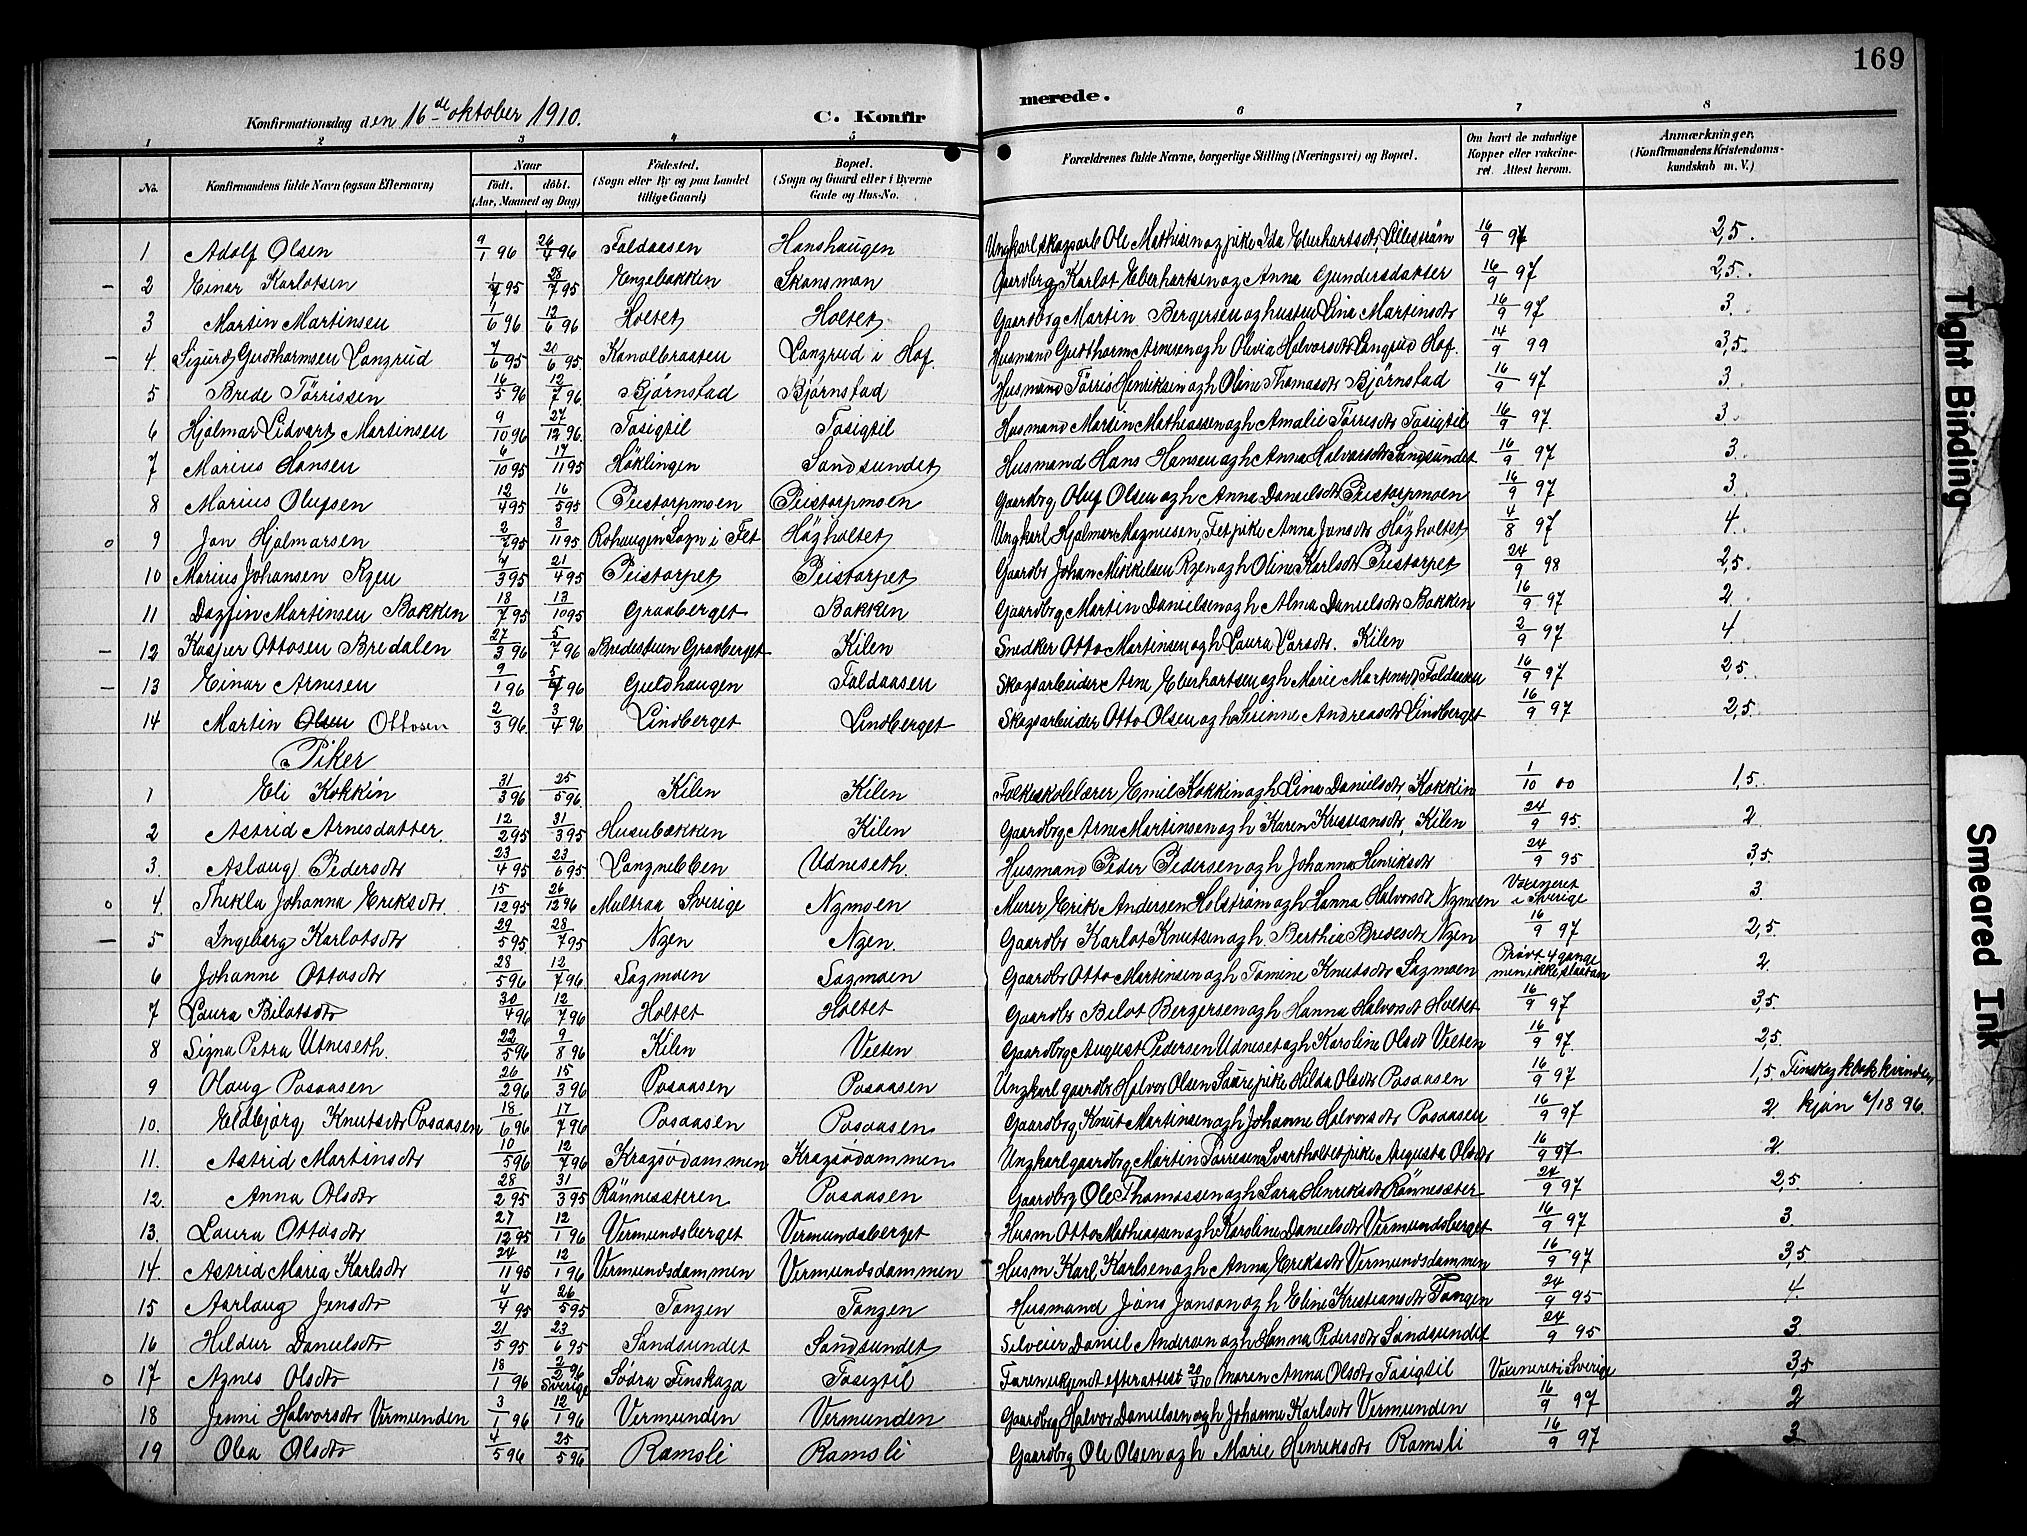 169
Konfirmationsdag den 16de oktober 1910. C. Konfirmerede.
1 2 3 4 5 6 7 8
No. Konfirmandens fulde Navn (ogsaa Efternavn) Naar født, døbt, (Aar, Maaned og Dag) Fødested. (Sogn eller By og paa Landet tillige Gaard) Bopæl. (Sogn og Gaard eller i Byerne Gade og Hus-No. Forældrenes fulde Navne, borgerlige Stilling (Næringsvei) og Bopæl. Om havt de naturlige Kopper eller vakcineret. Attest herom. Anmærkninger, (Konfirmandens Kristendomskundskab m. V.)
1 Adolf Olsen 9/1 96 26/4 96 Faldaasen Hanshaugen Ungkarl skogsarb Ole Mathisen og pike Ida Eberhartsdtr, Lillestrøm 16/9 97 2,5.
2 Einar Karlotsen 1/7 95 28/7 95 Engebakken Skansmon Gaardbrg Karlot Eberhartsen og Anna Gundersdatter 16/9 97 2,5.
3 Martin Martinsen 1/6 96 12/6 96 Holtet Holtet Gaardbrg Martin Bergersen og hustru Lina Martinsdtr 16/9 97 3.
4. Sigurd Gudthormsen Langrud 7/6 95 20/6 95 Kanalbraaten Langrud i Hof. Husmand Gudthorm Arnesen og h Olivia Halvorsdtr Langrud Hof. 14/9 99 3,5.
5 Brede Tørrissen 16/5 96 12/7 96. Bjørnstad Bjørnstad Husmand Tørris Henriksen og h Oline Thomasdtr Bjørnstad 16/9 97 3.
6 Hjalmar Lidvart Martinsen 9/10 96 27/12 96. Tosigtil Tosigtil Husmand Martin Mathiassen og h Amalie Tørrisdtr Tosigtil 16/9 97 3.
7 Marius Hansen 6/10 95 17/11 95 Høklingen Sandsundet Husmand Hans Hansen og h Anna Halvorsdtr Sandsundet 16/9 97 3.
8 Marius Olufsen 12/4 95 16/5 95 Peistorpmoen Peistorpmoen Gaardbrg Oluf Olsen og h Anna Danielsdtr Peistorpmoen 16/9 97 3.
9 Jan Hjalmarsen 2/7 95 3/11 95 Sogn i Fet Høgholtet Ungkarl Hjalmar Magnusen, Fet pike Anna Jansdtr Høgholtet 4/8 97 4.
10 Marius Johansen Ryen 4/3 95 21/4 95 Peistorpet Peistorpet Gaardbr Johan Mikkelsen Ryen og h Oline Karlsdtr Peistorpet 24/9 98 2,5.
11 Dagfin Martinsen Bakken 18/7 95 13/10 95 Graaberget Bakken Gaardbrg Martin Danielsen og h. Alma Danielsdtr Bakken 16/9 97 2.
12 Kasper Ottosen Bredalen 27/3 96 5/7 96 Graaberget Kilen Snedker Otto Martinsen og h Laura Larsdtr. Kilen 2/9 97 4
13 Einar Arnesen 9/1 96 5/4 96 Guldhaugen Faldaasen Skogsarbeider Arne Eberhartsen og h Marie Martinsdtr Faldaasen 16/9 97 2,5.
14 Martin Olsen Ottosen 2/3 96 3/4 96 Lindberget Lindberget Skogsarbeider Otto Olsen og h Serinne Andreasdtr Lindberget 16/9 97 2,5.
Piker
1 Eli Kokkin 31/3 96 25/5 96. Kilen Kilen Folkeskolelærer Emil Kokkin og h Lina Danielsdtr, Kokkin 1/10 00 1,5.
2 Astrid Arnesdatter. 12/2 95 31/3 95 Husubækken Kilen Gaardbrg Arne Martinsen og h Karen Kristiansdtr, Kilen 24/9 95. 2
3. Aslaug Pedersdtr 23/4 95 23/6 95 Langnebben Udneseth. Husmand Peder Pedersen og h Johanna Henriksdtr 24/9 95 3,5.
4 Thekla Johanna Eriksdtr. 15/12 95 26/12 96 Multraa Sverige Nymoen Murer Erik Andersen Holstrøm og h Hanna Halvorsdtr Nymoen Vaksineret i Sverige 3
5 Ingeborg Karlotsdtr 29/5 95 28/7 95 Nyen Nyen. Gaardbr Karlot Knutsen og h. Berthia Bredesdtr Nyen 16/9 97 2,5.
6 Johanne Ottosdtr 28/5 96 12/7 96 Sagmoen Sagmoen Gaardbr Otto Martinsen og h Tomine Knutsdtr Sagmoen Prøvt 4 gange men ikke slaat an 2
7 Laura Bilotsdtr 30/4 96 12/7 96 Holtet Holtet Gaardbr Belot Bergersen og h Hanna Halvorsdt Holtet 16/9 97 3,5
8 Signa Petra Utneseth. 22/5 96 9/8 96 Kilen Velten Gaardbrg August Pedersen Udneset og h Karoline Olsdt Velten 16/9 97. 2,5.
9 Olaug Posaasen 26/2 96 15/3 96 Posaasen Posaasen Ungkarl gaardbr Halvor Olsen pike Hilda Olsdtr Posaasen 16/9 97 1,5 Finskog kvinden
10. Eldbjørg Knutsdtr Posaasen 18/6 96 17/7 96 Posaasen Posaasen Gaardbrg Knut Martinsen og h Johanne Halvorsdtr Posaasen 16/9 97 2
11. Astrid Martinsdtr 10/5 96 12/7 96 Kragsjødammen Kragsjødammen Ungkarl gaardbrg Martin Tørresen Svartholtet pike Augusta Olsdtr 16/9 97 2.
12. Anna Olsdtr 28/2 95 31/3 95 Rønnesæteren Posaasen Gaardbrg Ole Thomassen og h Sara Henriksdtr Rønnesæter 24/9 97 2,5.
13. Laura Ottosdtr 27/12 95 12/1 96 Vermundsberget Vermundsberget Husm Otto Mathiassen og h Karoline Danielsdtr Vermundsberget 16/9 97 3.
14. Astrid Maria Karlsdtr 24/11 95 12/1 96 Vermundsdammen Vermundsdammen Husm Karl Karlsen og h Anna Eriksdtr Vermundsdammen 16/9 97 3,5
15 Aarlaug Jensdtr 4/4 95 26/5 95 Tangen Tangen Husmand Jøns Jonson og h Eline Kristiansdtr Tangen 24/9 95 4.
16 Hildur Danielsdtr 21/5 95 23/6 95 Sandsundet Sandsundet Daniel Anderson og h Hanna Pedersdtr Sandsundet 24/9 95 3
17 Agnes Olsdtr 18/1 96 2/2 96 Sverige Södra Finskoga Tosigtil Faren ukjendt efter attest moren Anna Olsdtr Tosigtil Vaksineret i Sverige 3,5
18 Jenni Halvorsdtr Vermunden 3/1 96 12/1 96 Vermunden Vermunden Gaardbrg Halvor Danielsen og h Johanne Karlsdtr Vermunden 16/9 97 2
19 Olea Olsdtr 4/5 96 25/5 96 Ramsli Ramsli Gaardbrg Ole Olsen og h Marie Henriksdtr Ramsli 16/9 97 3
Tight Binding
Smeared Ink